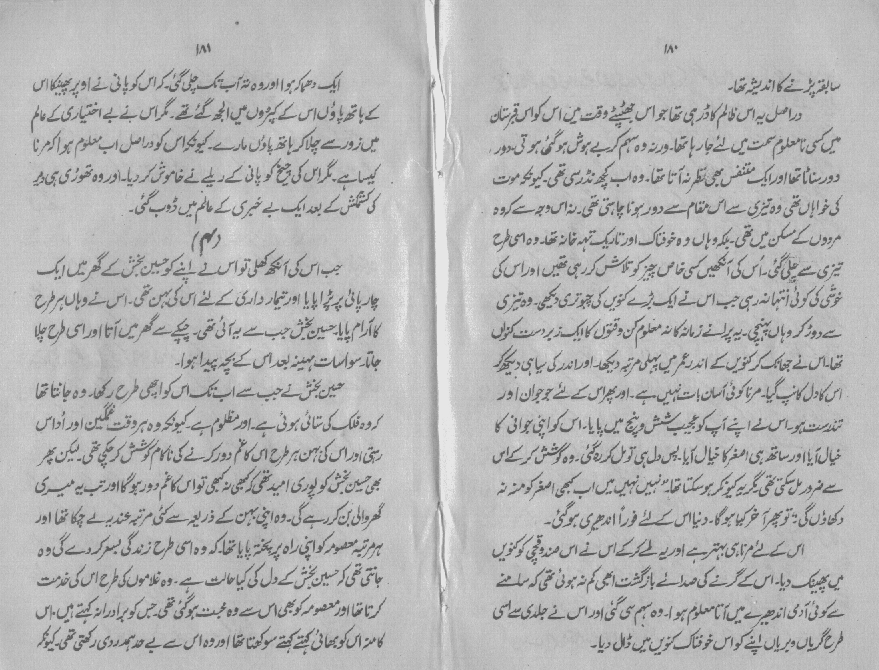 ۱۸۰
سابقہ پڑنے کا اندیشہ تھا۔
دراصل یہ اس ظالم کا ڈر ہی تھا جو اس جھٹپٹے وقت میں اس کو اس قبرستان
میں کسی نامعلوم سمت میں لئے جا رہا تھا۔ ورنہ وہ سہم کر بے ہوش ہو گئی ہوتی۔ دور
دور سناٹا تھا اور ایک متنفس بھی نظر نہ آتا تھا۔ وہ اب کچھ نڈر سی تھی۔ کیونکہ موت
کی خواہاں تھی وہ تیزی سے اس مقام سے دور ہونا چاہتی تھی۔ نہ اس وجہ سے کہ وہ
مردوں کے مسکن میں تھی۔ بلکہ وہاں وہ خوفناک اور تاریک تہہ خانہ تھا۔ وہ اسی طرح
تیزی سے چلی گئی۔ اُس کی آنکھیں کسی خاص چیز کو تلاش کر رہی تھیں اور اس کی
خوشی کی کوئی انتہا نہ رہی جب اس نے ایک بڑے کنویں کی چبوتری دیکھی۔ وہ تیزی
سے دوڑ کر وہاں پہنچی۔ یہ پرانے زمانہ کا نہ معلوم کن وقتوں کا ایک زبردست کنواں
تھا۔ اس نے جھانک کر کنویں کے اندر عمر میں پہلی مرتبہ دیکھا۔ اور اندر کی سیاہی دیکھ کر
اس کا دل کانپ گیا۔ مرنا کوئی آسان بات نہیں ہے۔ اور پھر اس کے لئے جو جوان اور
تندرست ہو۔ اس نے اپنے آپ کو عجیب شش و پنج میں پایا۔ اس کو اپنی جوانی کا
خیال آیا اور ساتھ ہی اصغر کا خیال آیا۔ بس دل ہی تو مل کر رہ گئی۔ وہ کوشش کر کے اس
سے ضرور مل سکتی تھی۔ مگر یہ کیونکر ہو سکتا تھا۔ "نہیں نہیں میں اب کبھی اصغر کو منہ نہ
دکھاؤں گی" تو پھر آخر کیا ہو گا۔ دنیا اس کے لئے فوراً اندھیری ہو گئی۔
اس کے لئے مرنا ہی بہتر ہے اور یہ طے کر کے اس نے اس صندوقچی کو کنویں
میں پھینک دیا۔ اس کے گرنے کی صدائے بازگشت ابھی کم نہ ہوئی تھی کہ سامنے
سے کوئی آدمی اندھیرے میں آتا معلوم ہوا۔ وہ سہم سی گئی اور اس نے جلدی سے اسی
طرح گریاں و بریاں اپنے کو اس خوفناک کنویں میں ڈال دیا۔
۱۸۱
ایک دھماکہ ہوا اور وہ تہ آب تک چلی گئی۔ کہ اس کو پانی نے اوپر پھینکا اس
کے ہاتھ پاؤں اس کے کپڑوں میں الجھ گئے تھے۔ مگر اس نے بے اختیاری کے عالم
میں زور سے چلا کر ہاتھ پاؤں مارے۔ کیونکہ اس کو دراصل اب معلوم ہوا کہ مرنا
کیسا ہے۔ مگر اس کی چیخ کو پانی کے ریلے نے خاموش کر دیا۔ اور وہ تھوڑی ہی دیر
کی کشمکش کے بعد ایک بے خبری کے عالم میں ڈوب گئی۔
(۴)
جب اس کی آنکھ کھلی تو اس نے اپنے کو حسین بخش کے گھر میں ایک
چارپائی پر پڑا پایا اور تیمار داری کے لئے اس کی بہن تھی۔ اس نے وہاں ہر طرح
کا آرام پایا۔ حسین بخش جب سے یہ آئی تھی۔ چپکے سے گھر میں آتا اور اسی طرح چلا
جاتا۔ سوا سات مہینہ بعد اس کے بچہ پیدا ہوا۔
حسین بخش نے جب سے اب تک اس کو اچھی طرح رکھا۔ وہ جانتا تھا
کہ وہ فلک کی ستائی ہوئی ہے۔ اور مظلوم ہے۔ کیونکہ وہ ہر وقت غمگین اور اُداس
رہتی اور اس کی بہن ہر طرح اس کا غم دور کرنے کی ناکام کوشش کر چکی تھی۔ لیکن پھر
بھی حسین بخش کو پوری امید تھی کہ کبھی نہ کبھی تو اس کا غم دور ہو گا اور تب یہ میری
گھر والی بن کر رہے گی۔ وہ اپنی بہن کے ذریعہ سے کئی مرتبہ عندیہ لے چکا تھا اور
ہر مرتبہ معصومہ کو اپنی راہ پر پختہ پایا تھا۔ کہ وہ اسی طرح زندگی بسر کر دے گی وہ
جانتی تھی کہ حسین بخش کے دل کی کیا حالت ہے۔ وہ غلاموں کی طرح اس کی خدمت
کرتا تھا اور معصومہ کو بھی اس سے وہ محبت ہو گئی تھی۔ جس کو برادرانہ کہتے ہیں، اس
کا منہ اس کو بھائی کہتے کہتے سوکھتا تھا اور وہ اس سے بے حد ہمدردی رکھتی تھی۔ کیونکہ